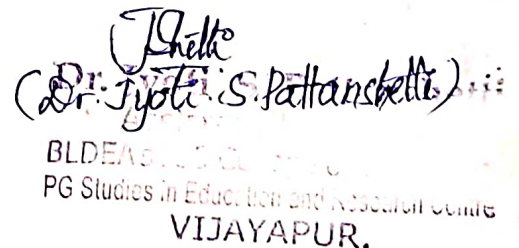 JShetti
(Dr. Jyoti S. Pattanshetti)
BLDEA's
PG Studies in Education and Research Centre
VIJAYAPUR.